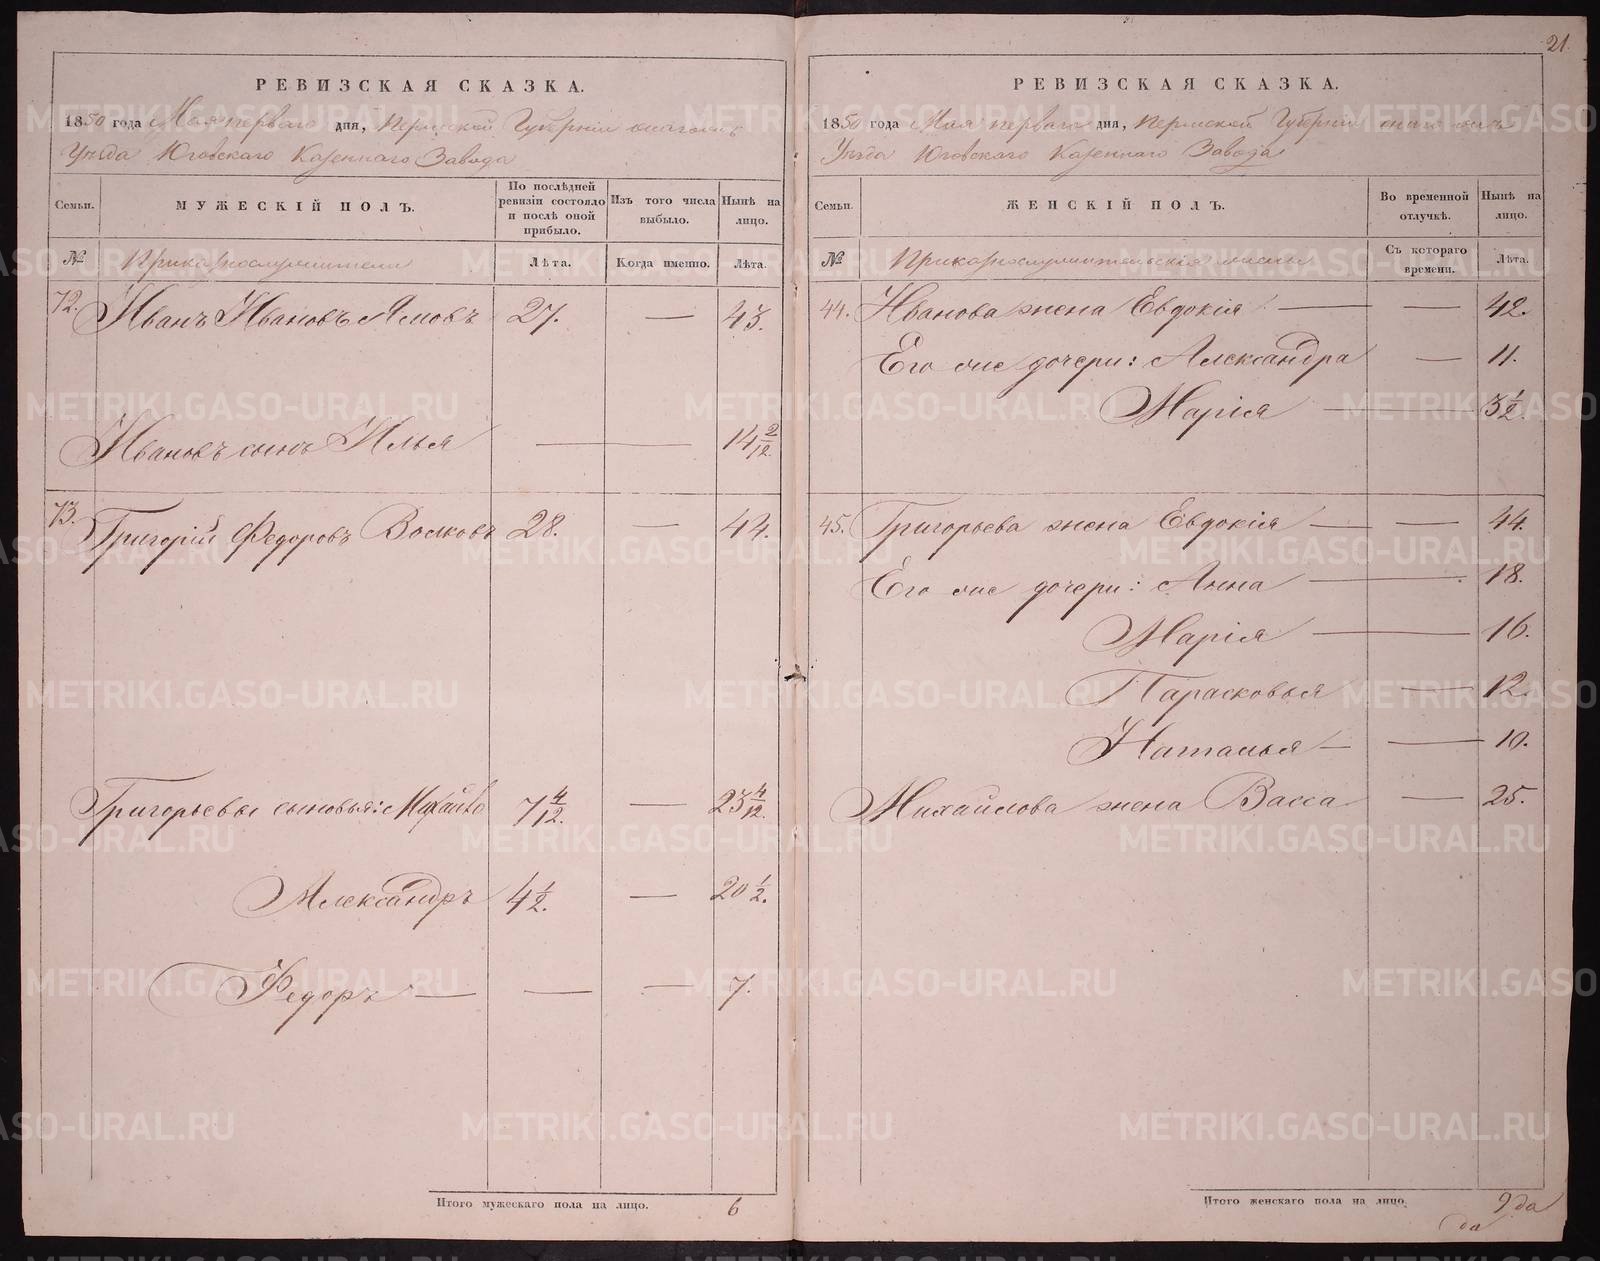 21.
РЕВИЗСКАЯ СКАЗКА.
1850 года Мая перваго дня, Пермской Губерніи онагожъ
Уѣзда Юговскаго Казеннаго Завода
Семьи.
МУЖЕСКІЙ ПОЛЪ.
По послѣдней ревизіи состояло и послѣ оной прибыло.
Изъ того числа выбыло.
Нынѣ на лицо.
№
Лѣта.
Когда именно.
Лѣта.
72. Иванъ Ивановъ 27. — 43.
Ивановъ сынъ Илья — 14 2/12.
73. Григорій Федоровъ Волковъ 28. — 44.
Григорьевы сыновья: Михайло 7 4/12. — 23 4/12.
Александръ 4 1/2. — 20 1/2.
Федоръ — — — 7.
Итого мужескаго пола на лицо. 6
РЕВИЗСКАЯ СКАЗКА.
1850 года Мая перваго дня, Пермской Губерніи онагожъ
Уѣзда Юговскаго Казеннаго Завода
Семьи.
ЖЕНСКІЙ ПОЛЪ.
Во временной отлучкѣ.
Нынѣ на лицо.
№
Съ котораго времени.
Лѣта.
44. Иванова жена Евдокія — — 42.
Его же дочери: Александра — 11.
Марія — 3 1/2.
45. Григорьева жена Евдокія — — 44.
Его же дочери: Анна — 18.
Марія — 16.
Парасковья — 12.
Наталья — — 10.
Михайлова жена Васса — 25.
Итого женскаго пола на лицо. 9 да
да
METRIKI.GASO-URAL.RU